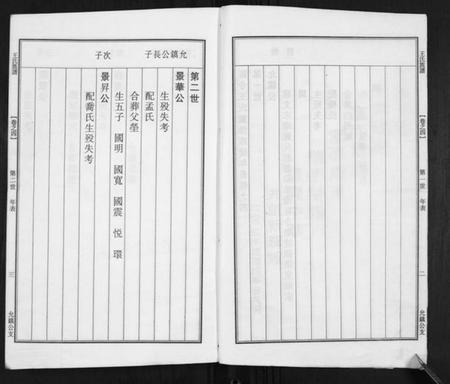 王氏族譜
【卷之四】
第一世 年表
二
允鎮公支
第二世
允鎮公長子
景華公
生殁失考
配孟氏
合葬父塋
生五子 國明 國寬 國震 悦 環
次子
景昇公
配喬氏生殁失考
王氏族譜
【卷之四】
第二世 年表
三
允鎮公支